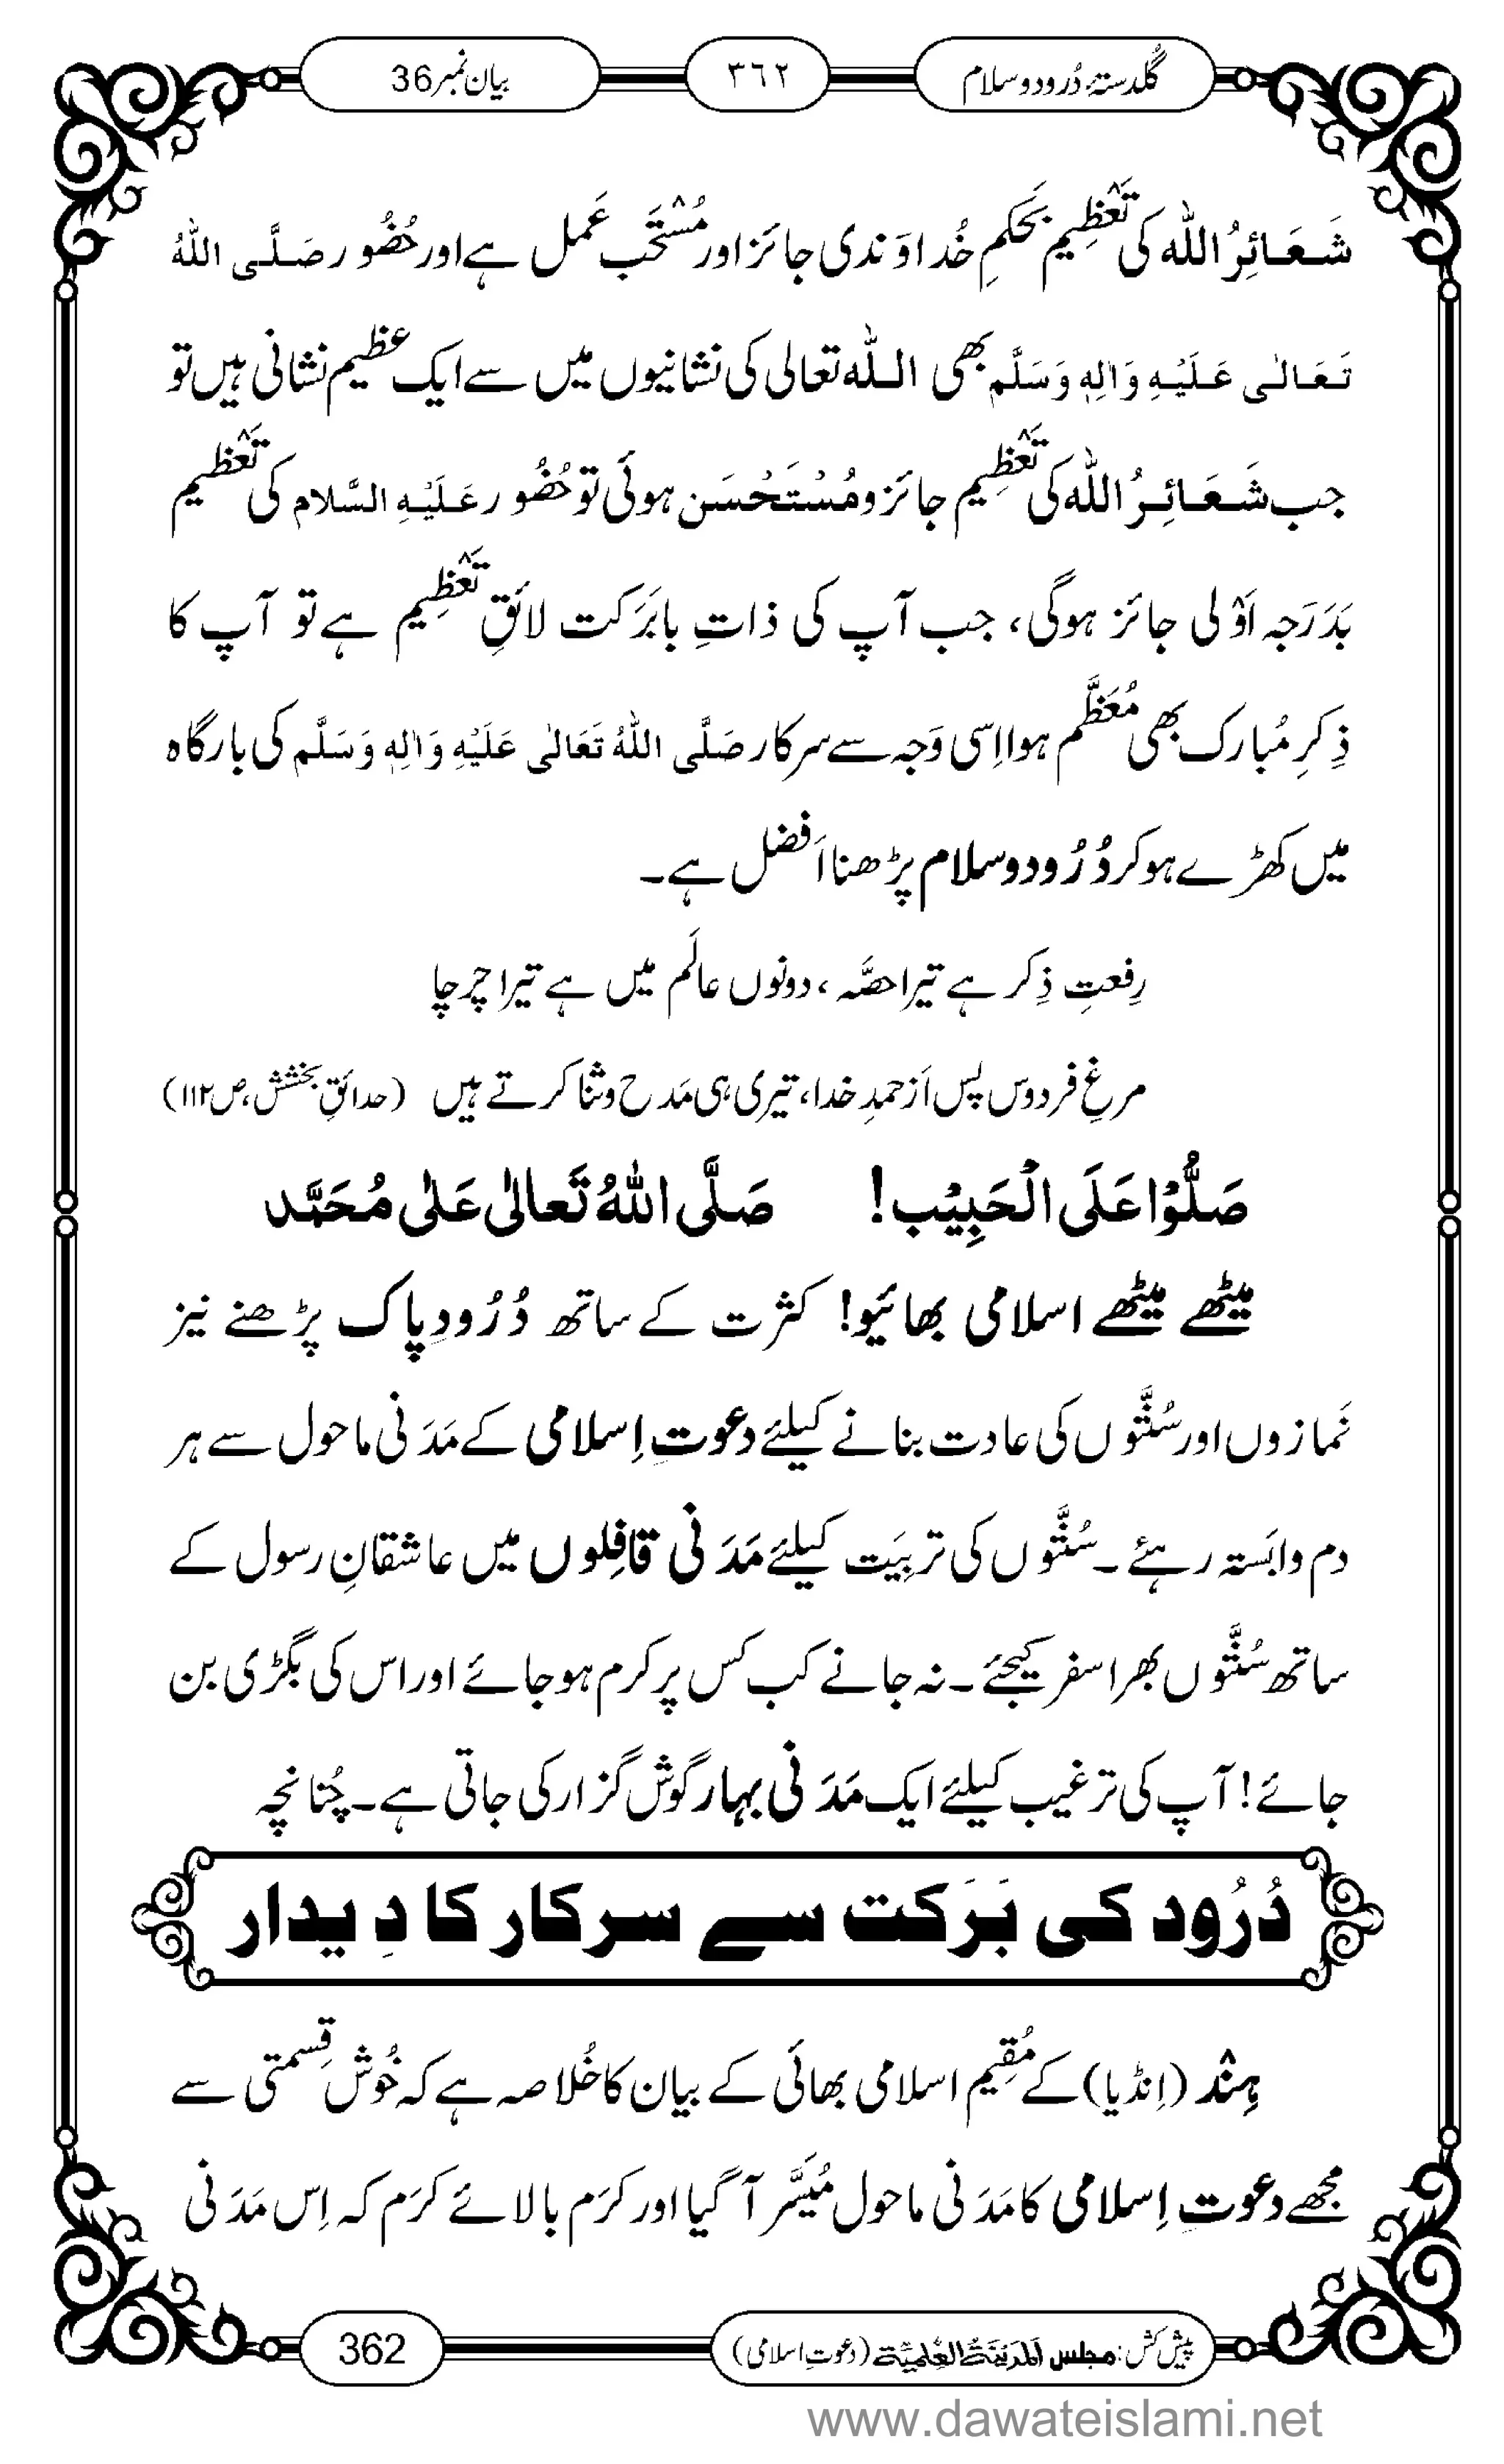 گلدستۂ دُرودوسلام
٣٦٢
بیان نمبر36
شَـعَـائِرُ اللہ کی تَعْظِیم بَحکمِ خُداوَندی جائز اور مُسْتَحَب عَمل ہے اور حُضُور صَلَّی اللہُ
تَـعَـالٰـی عَـلَـيْـہِ وَاٰلِہٖ وَسَلَّم بھی الـلـہ تعالی کی نشانیوں میں سے ایک عظیم نشانی ہیں تو
جب شَـعَـائِـرُ اللہ کی تَعْظِیم جائز و مُسْتَحْسَن ہوئی تو حُضُور عَـلَـيْـہِ السَّلام کی تَعْظِیم
بَدَرَجہ اَوْلی جائز ہوگی، جب آپ کی ذاتِ بابَرَکت لائقِ تَعْظِیم ہے تو آپ کا
ذِکرِ مُبارک بھی مُعَظَّم ہوا اِسی وَجہ سے سرکار صَلَّی اللہُ تَعَالٰی عَلَيْہِ وَاٰلِہٖ وَسَلَّم کی بارگاہ
میں کھڑے ہوکر دُرُودوسلام پڑھنا اَفضل ہے۔
رِفعتِ ذِکر ہے تیرا حصَّہ، دونوں عالَم میں ہے تیرا چرچا
مرغِ فردوس پس اَز حمدِ خدا، تیری ہی مَدح و ثنا کرتے ہیں (حدائقِ بخشش، ص۱۱۲)
صَلُّوْا عَلَی الْحَبِیْب! صَلَّی اللہُ تَعالٰی عَلٰی مُحَمَّد
میٹھے میٹھے اسلامی بھائیو! کثرت کے ساتھ دُرُودِپاک پڑھنے نیز
نَمازوں اور سُنَّتوں کی عادت بنانے کیلئے دعوتِ اِسلامی کے مَدَنی ماحول سے ہر
دم وابَستہ رہئے۔ سُنَّتوں کی تربِیَت کیلئے مَدَنی قافِلوں میں عاشقانِ رسول کے
ساتھ سُنَّتوں بھرا سفر کیجئے۔ نہ جانے کب کس پر کرم ہوجائے اور اس کی بگڑی بن
جائے! آپ کی ترغیب کیلئے ایک مَدَنی بہار گوش گزار کی جاتی ہے۔ چُنانچہ
دُرُود کی بَرَکت سے سرکار کا دِیدار
ہِنْد (اِنڈیا) کے مُقِیم اسلامی بھائی کے بیان کا خُلاصہ ہے کہ خُوش قِسمتی سے
مجھے دعوتِ اِسلامی کا مَدَنی ماحول مُیَسَّر آگیا اور کرَم بالائے کرَم کہ اِس مَدَنی
پیش کش: مجلس اَلْمَدِیْنَۃُ الْعِلْمِیَّۃ (دعوتِ اسلامی)
362
www.dawateislami.net